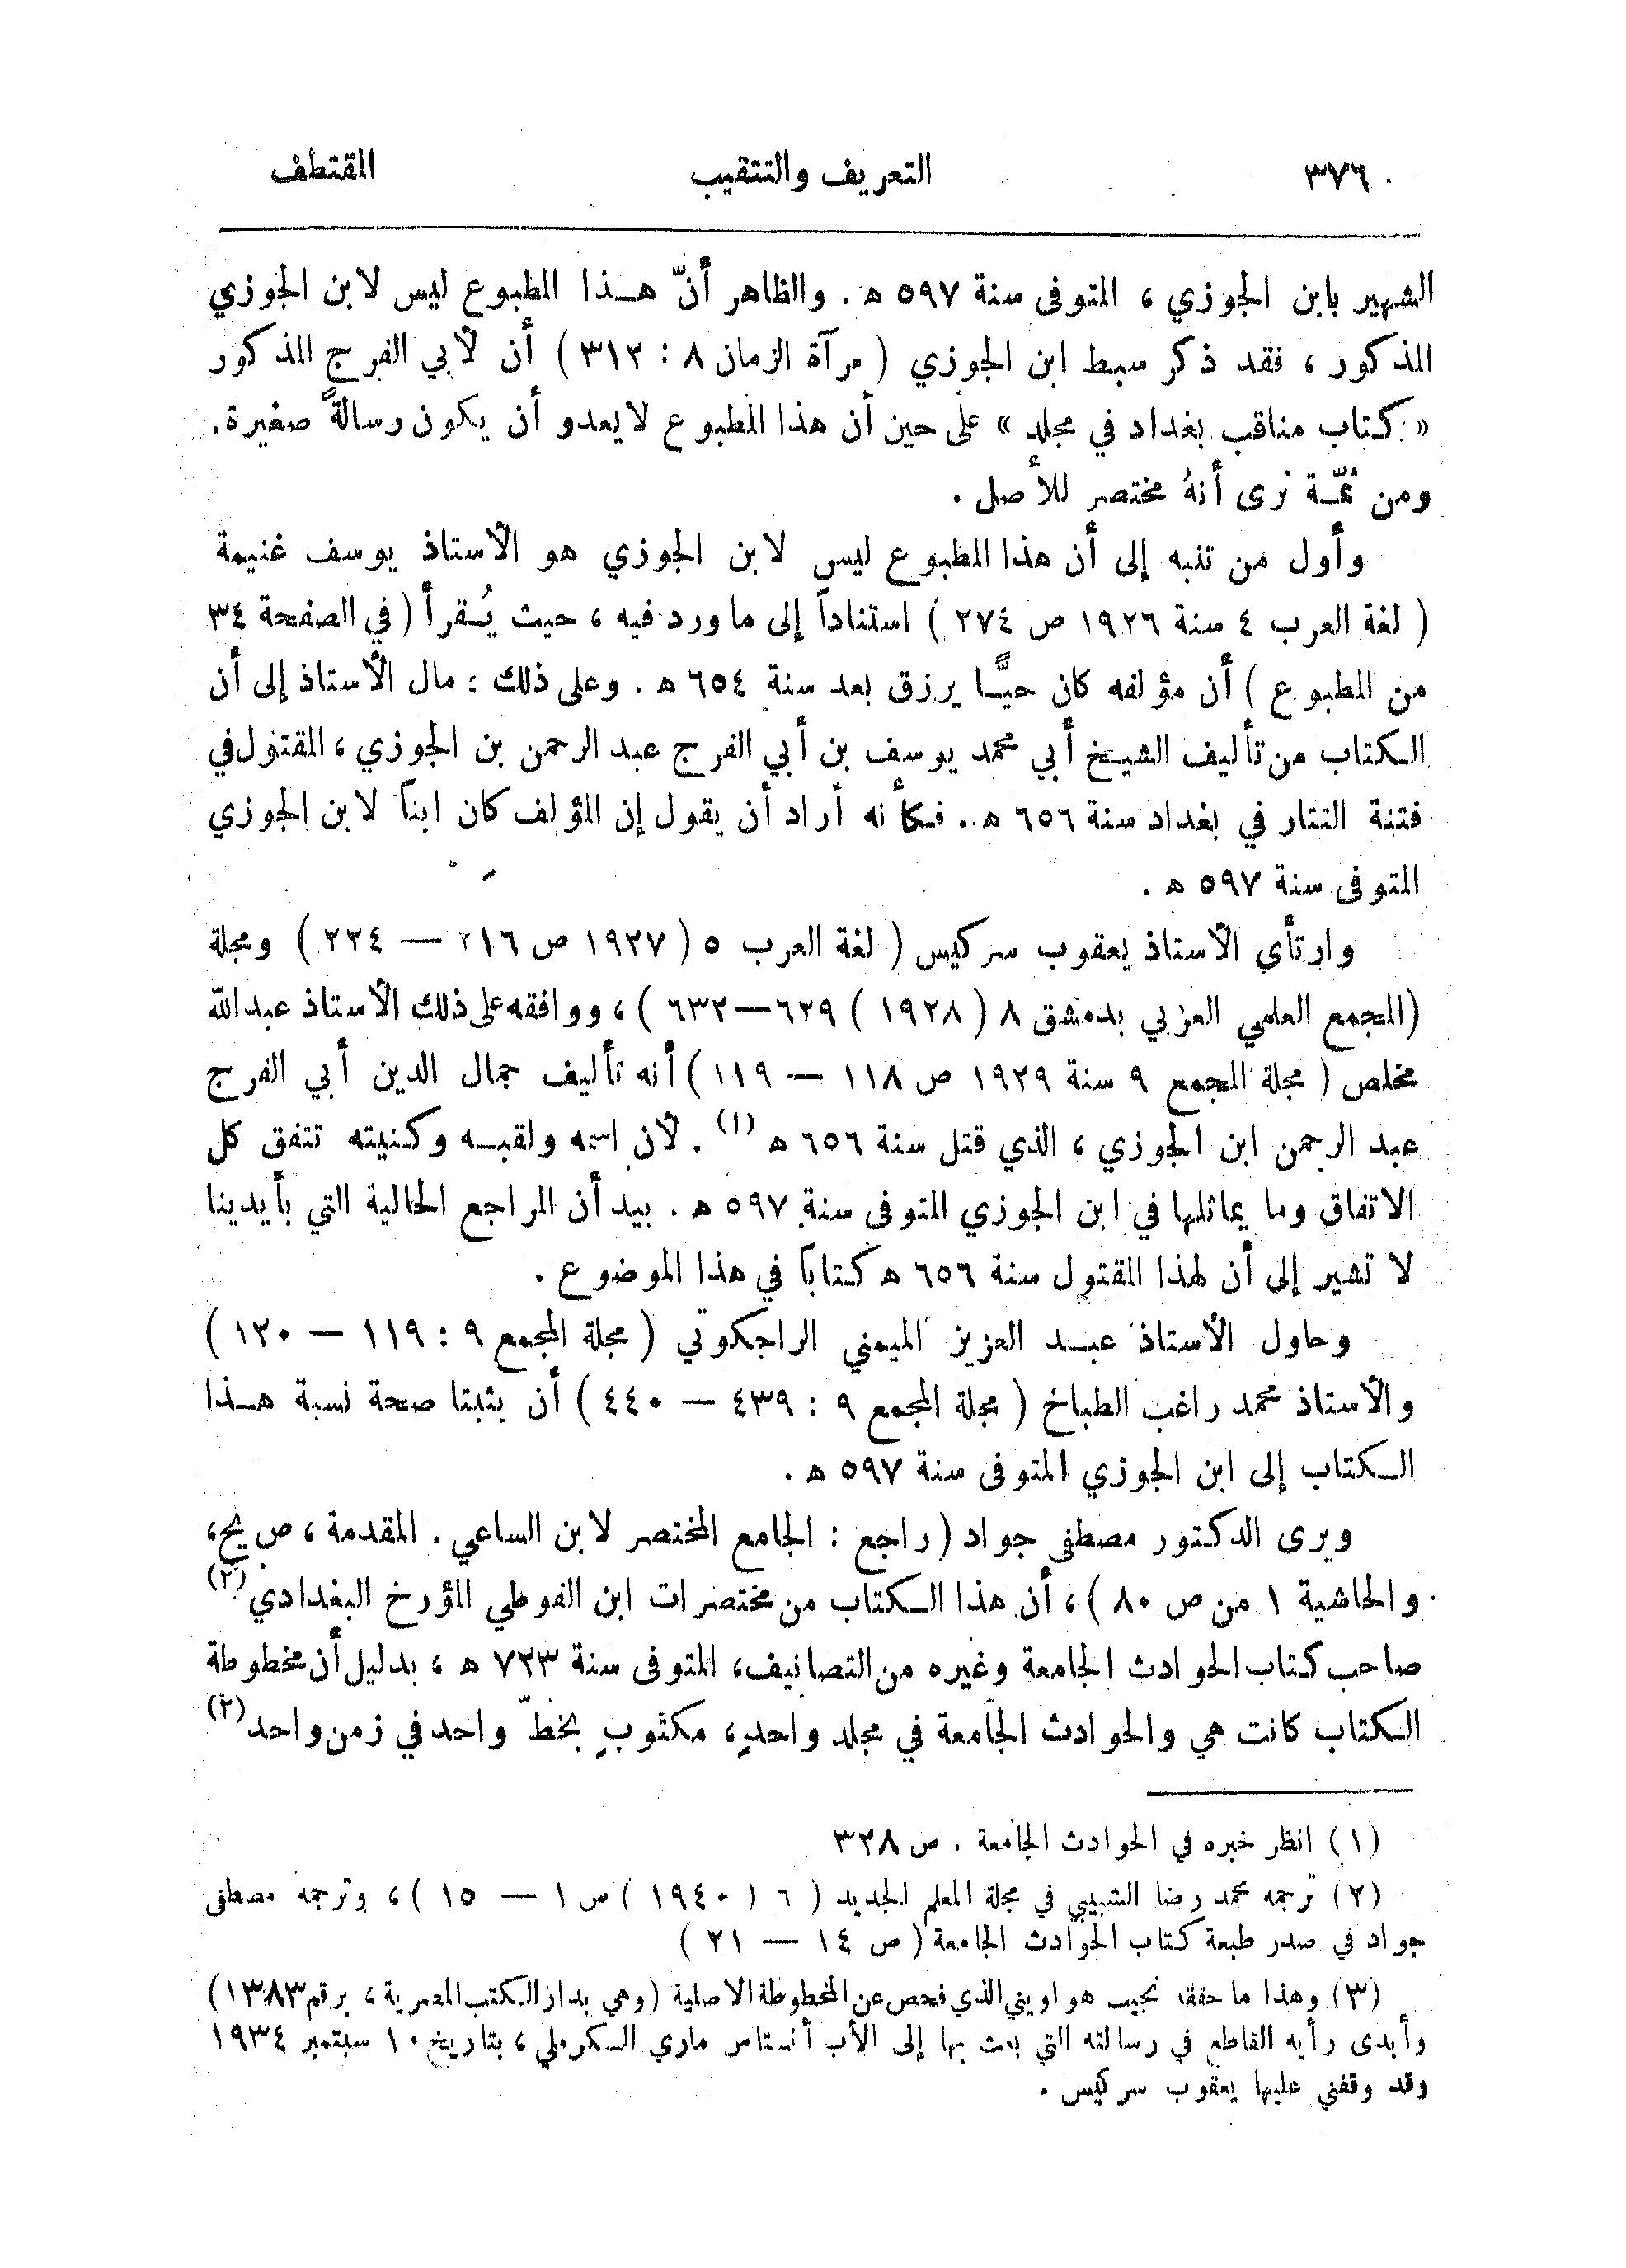 ٣٧٦ التعريف والتنقيب المقتطف
الشهير بابن الجوزي ، المتوفى سنة ٥٩٧ ه . والظاهر أنّ هـذا المطبوع ليس لابن الجوزي
المذكور ، فقد ذكر سبط ابن الجوزي ( مرآة الزمان ٨ : ٣١٢ ) أن لأبي الفرج المذكور
« كتاب مناقب بغداد في مجلد » على حين أن هذا المطبوع لا يعدو أن يكون رسالةً صغيرة.
ومن ثمّـة نرى أنهُ مختصر للأصل .
وأول من تنبه إلى أن هذا المطبوع ليس لابن الجوزي هو الأستاذ يوسف غنيمة
( لغة العرب ٤ سنة ١٩٢٦ ص ٢٧٤ ) استناداً إلى ما ورد فيه ، حيث يُـقرأ ( في الصفحة ٣٤
من المطبوع ) أن مؤلفه كان حيًّـا يرزق بعد سنة ٦٥٤ ه . وعلى ذلك : مال الأستاذ إلى أن
الكتاب من تأليف الشيخ أبي محمد يوسف بن أبي الفرج عبد الرحمن بن الجوزي ، المقتول في
فتنة التتار في بغداد سنة ٦٥٦ ه . فكأنه أراد أن يقول إن المؤلف كان ابناً لابن الجوزي
المتوفى سنة ٥٩٧ ه .
وارتأى الأستاذ يعقوب سركيس ( لغة العرب ٥ ( ١٩٢٧ ص ٢١٦ — ٢٢٤ ) ومجلة
(المجمع العلمي العربي بدمشق ٨ ( ١٩٢٨ ) ٦٢٩—٦٣٢ ) ، ووافقه على ذلك الأستاذ عبدالله
مخلص ( مجلة المجمع ٩ سنة ١٩٢٩ ص ١١٨ — ١١٩ ) أنه تأليف جمال الدين أبي الفرج
عبد الرحمن ابن الجوزي ، الذي قتل سنة ٦٥٦ ه (١) . لأن اسمه ولقبـه وكنيته تتفق كل
الاتفاق وما يماثلها في ابن الجوزي المتوفى سنة ٥٩٧ ه . بيد أن المراجع الحالية التي بأيدينا
لا تشير إلى أن لهذا المقتول سنة ٦٥٦ ه كتاباً في هذا الموضوع .
وحاول الأستاذ عبـد العزيز الميمني الراجكوتي ( مجلة المجمع ٩ : ١١٩ — ١٢٠ )
والأستاذ محمد راغب الطباخ ( مجلة المجمع ٩ : ٤٣٩ — ٤٤٠ ) أن يثبتا صحة نسبة هـذا
الكتاب إلى ابن الجوزي المتوفى سنة ٥٩٧ ه .
ويرى الدكتور مصطفى جواد ( راجع : الجامع المختصر لابن الساعي . المقدمة ، ص يح ،
والحاشية ١ من ص ٨٠ ) ، أن هذا الكتاب من مختصرات ابن الفوطي المؤرخ البغدادي (٢)
صاحب كتاب الحوادث الجامعة وغيره من التصانيف ، المتوفى سنة ٧٢٣ ه ، بدليل أن مخطوطة
الكتاب كانت هي والحوادث الجامعة في مجلد واحدٍ ، مكتوبٍ بخطّ واحد في زمن واحد (٣)
(١) انظر خبره في الحوادث الجامعة . ص ٣٢٨
(٢) ترجمه محمد رضا الشبيبي في مجلة المعلم الجديد ( ٦ ( ١٩٤٠ ) ص ١ — ١٥ ) ، وترجمه مصطفى
جواد في صدر طبعة كتاب الحوادث الجامعة ( ص ١٤ — ٢١ )
(٣) وهذا ما حققه نجيب هواويني الذي فحص عن المخطوطة الاصلية ( وهي بدار الكتب المصرية ، برقم ١٣٨٣)
وأبدى رأيه القاطع في رسالته التي بعث بها إلى الأب أنستاس ماري الكرملي ، بتاريخ ١٠ سبتمبر ١٩٣٤
وقد وقفني عليها يعقوب سركيس .